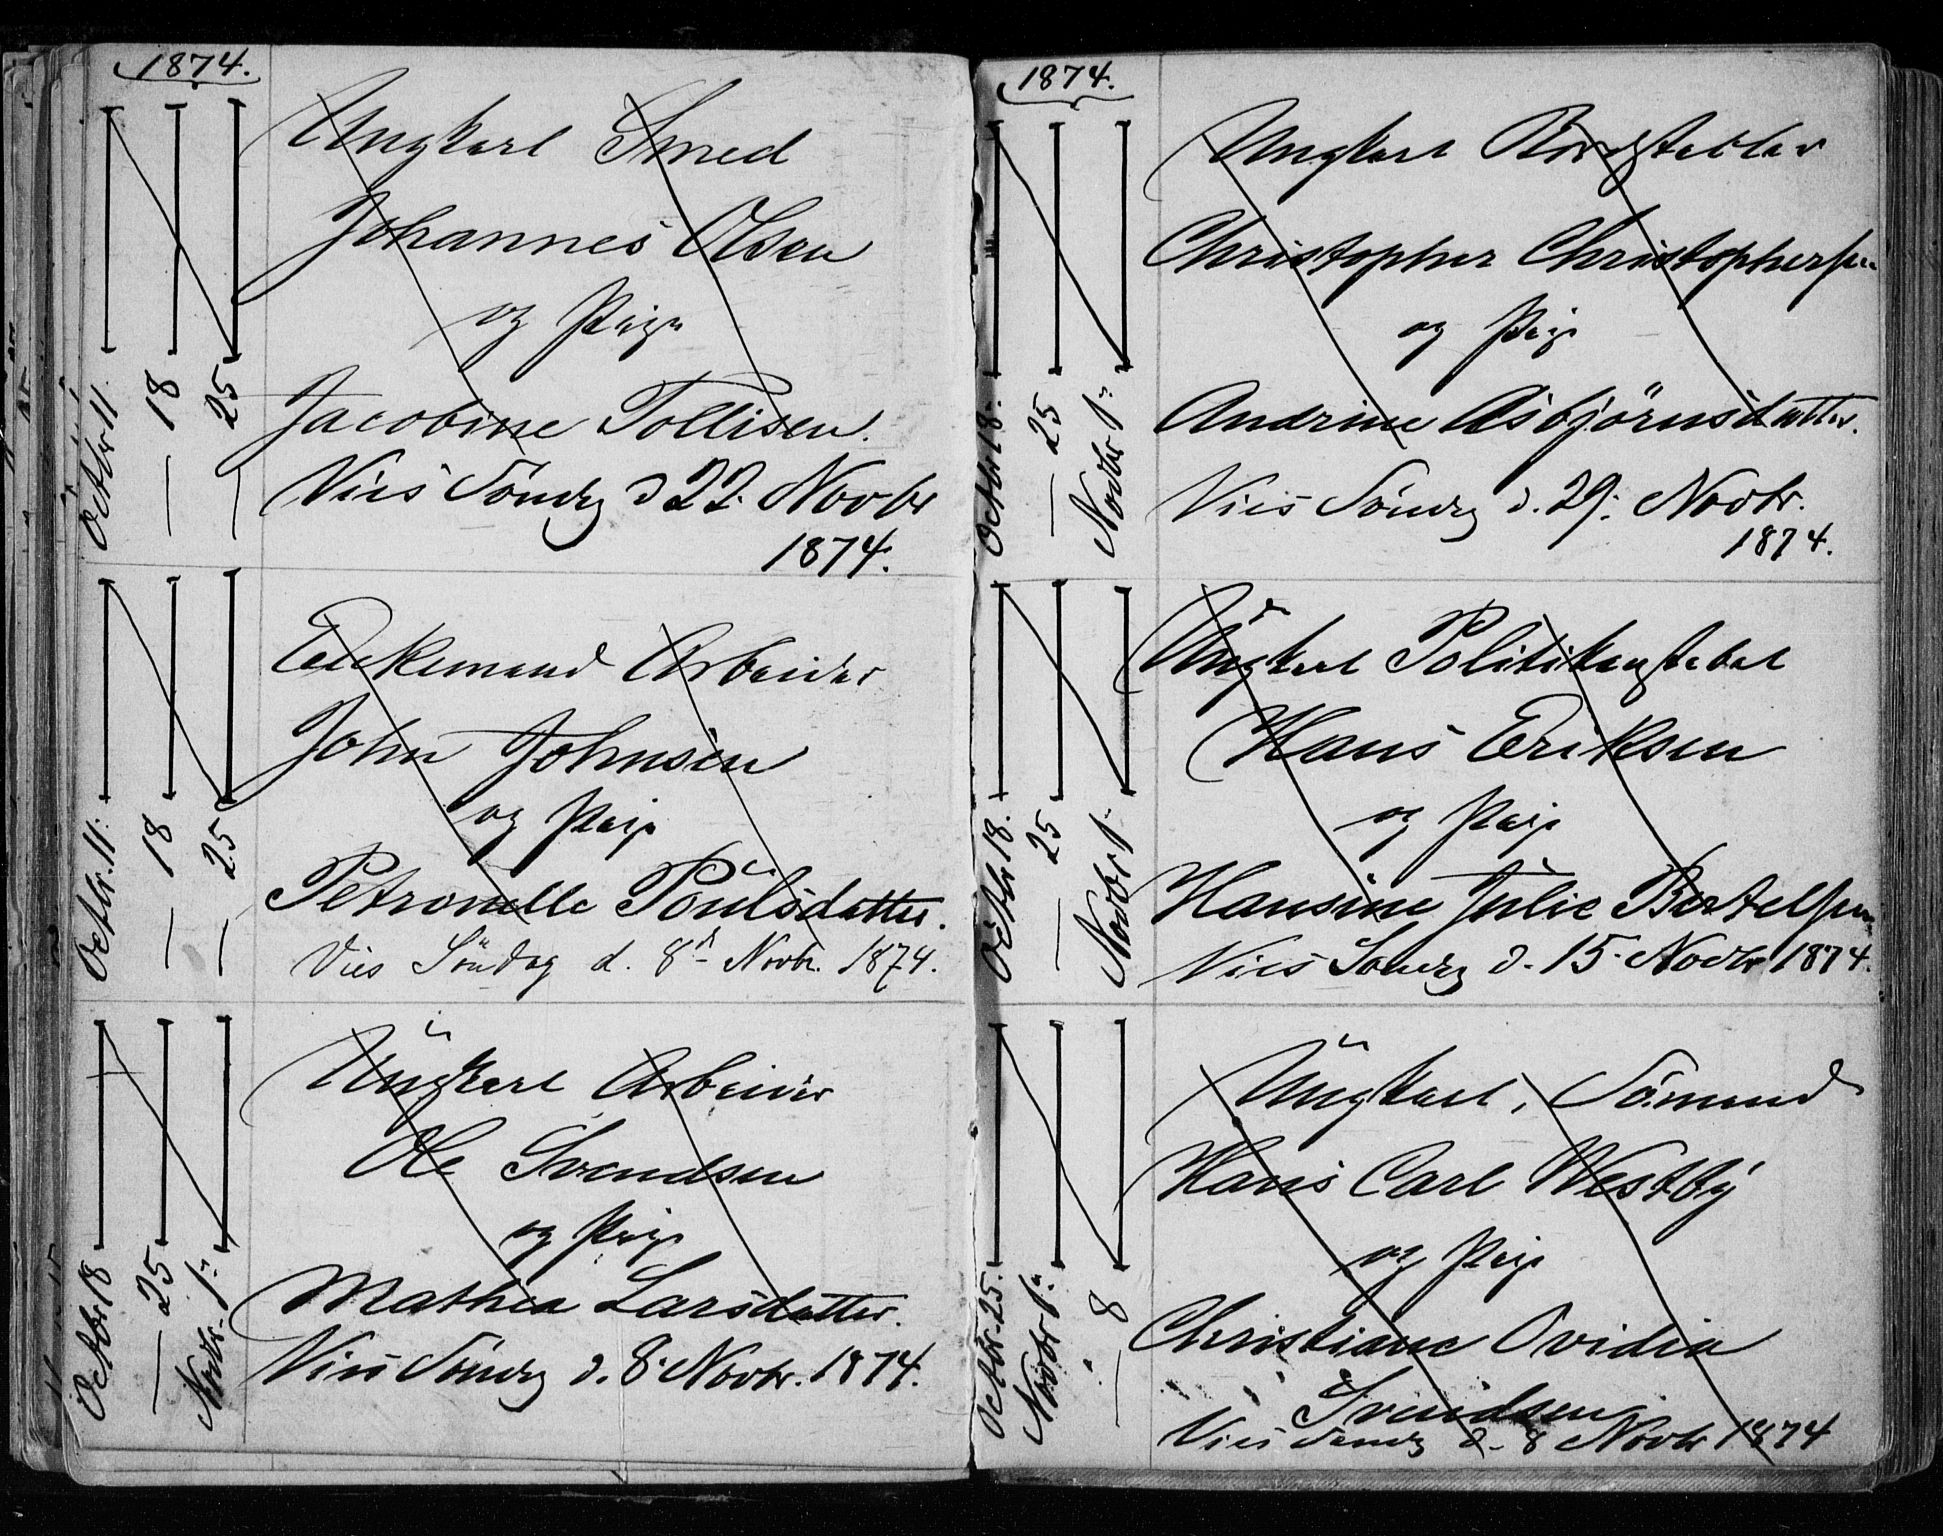 1874.
Octbr 11.
— 18
— 25
Ungkarl Smed
Johannes Olsen
og Pige
Jacobine Tollisen.
Vies Söndg d 22. Novbr
1874.
Octbr. 11.
— 18
— 25
Enkemand Arbeider
John Johnsen
og Pige
Petronelle Poulsdatter.
Vies Söndag d. 8d Novbr. 1874.
Octbr 18
— 25
Novbr. 1.
Ungkarl Arbeider
Ole Svendsen
og Pige
Mathea Larsdatter.
Vies Söndg d. 8. Novbr. 1874.
1874.
Octbr 18.
— 25
Novbr 1.
Ungkarl
Christopher Christophersen
og Pige
Andrine Asbjörnsdatter.
Vies Söndg d. 29. Novbr.
1874.
Octbr 18.
— 25
Novbr 1.
Ungkarl Politikonstabel
Hans Eriksen
og Pige
Hansine Julie Bertelsen
Vies Söndg d. 15. Novbr 1874.
Octbr. 25.
Novbr 1.
— 8
Ungkarl, Sömand
Hans Carl Westby
og Pige
Christiane Ovidia
Svendsen
Vies Söndg d. 8 Novbr 1874